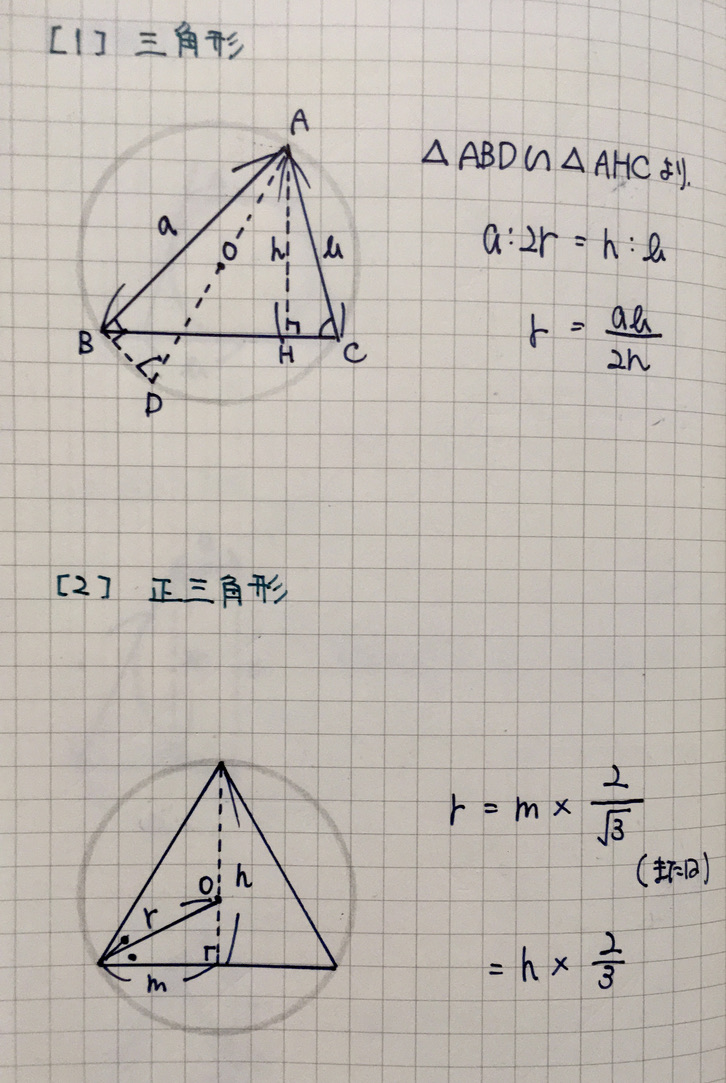 [1] 三角形
A
a
O
h
b
B
H
C
D
△ABD∽△AHCより、
a:2r = h:b
r = ab/2h
[2] 正三角形
O
h
r
m
r = m × 2/√3
(または)
= h × 2/3